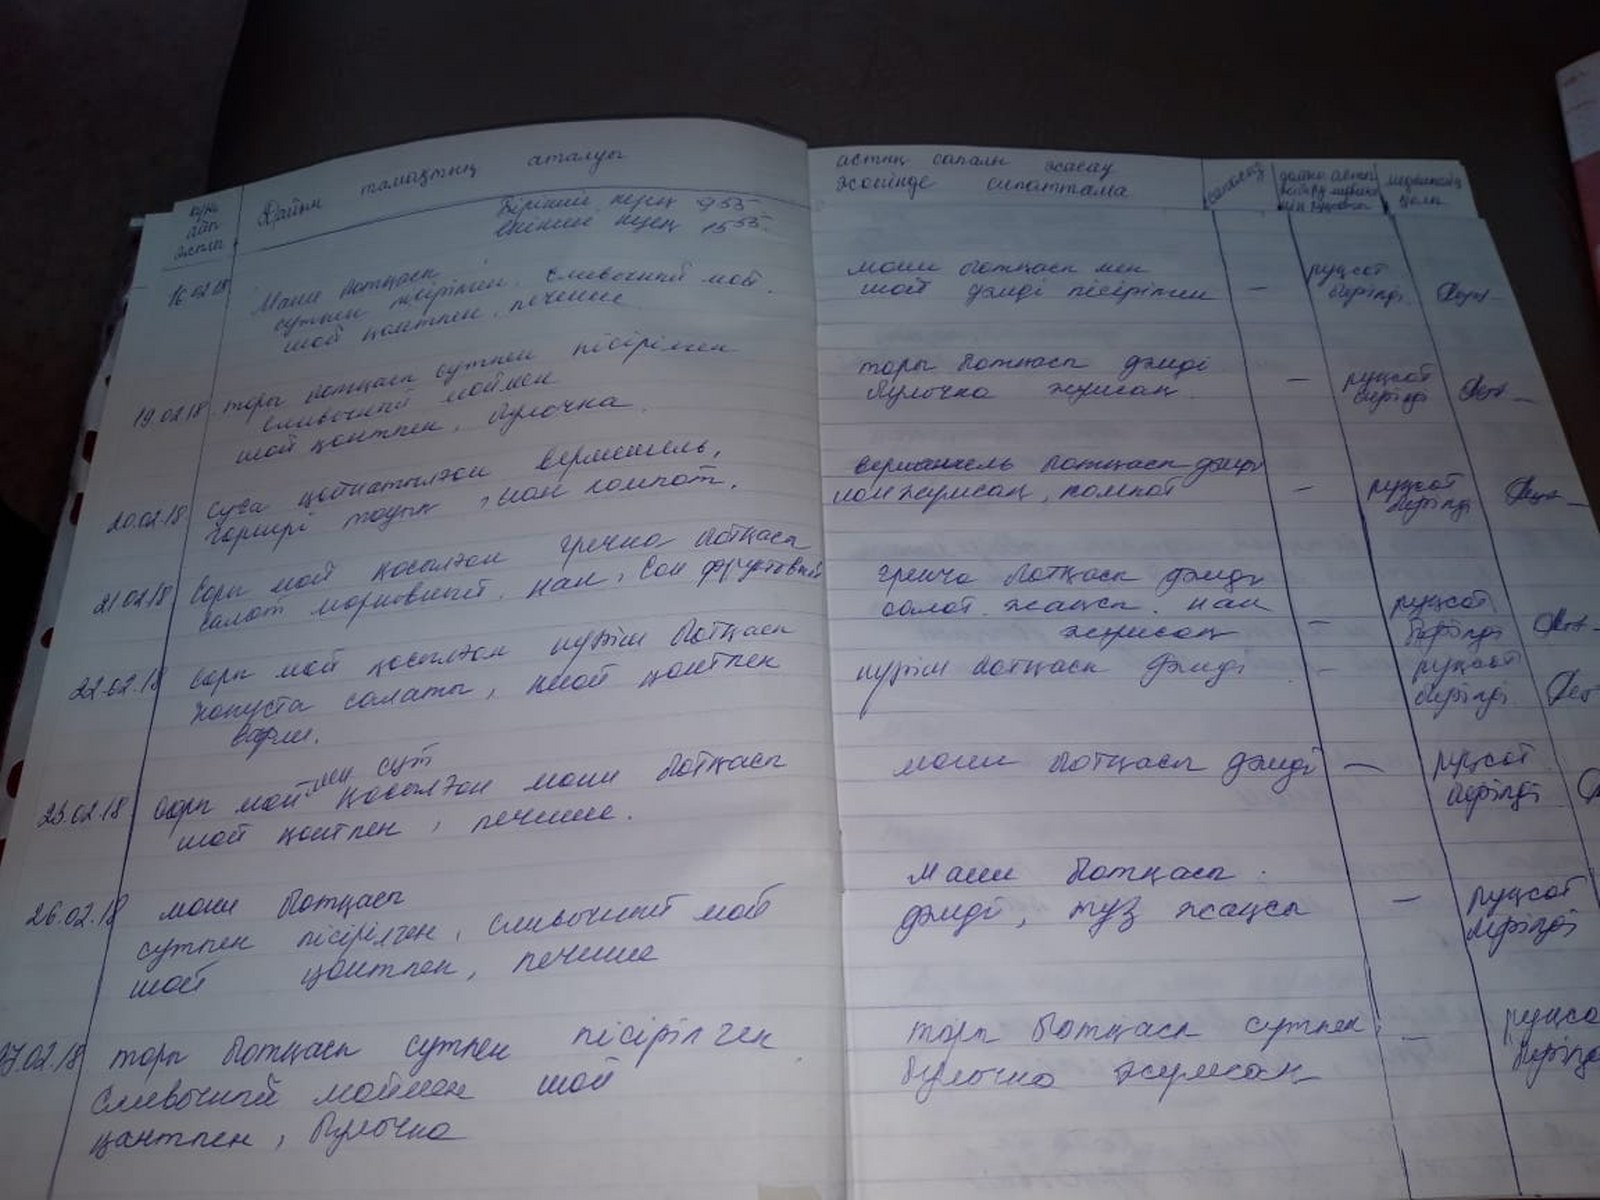 күні Дайын тамақтың аталуы
айы Бірінші 9 55
жылы екінші 15 55
астың сапалы жасау
жөнінде сипаттама
16.02.18 Маш ботқасы
сутпен пісірілген. сливочный май.
шай қантпен, печенье
маш ботқасы мен
шай дәмді пісірілген — руқсат
берілді
19.02.18 тары ботқасы сутпен пісірілген
сливочный маймен
шай қантпен, булочка.
тары ботқасы дәмді
булочка жумсақ — руқсат
берілді
20.02.18 суға қайнатылған вермешель,
гарнирі тауық, нан компот.
вермишель ботқасы дәмді
нан жумсақ, компот — руқсат
берілді
21.02.18 Сары май қосылған гречка ботқасы
салат морковный, нан, сок фруктовый
гречка ботқасы дәмді
салат жақсы. нан
жумсақ — руқсат
берілді
22.02.18 сары май қосылған куріш ботқасы
капуста салаты, шай қантпен
вафли.
куріш ботқасы дәмді — руқсат
берілді
23.02.18 сары май мен сут қосылған маш ботқасы
шай қантпен, печенье.
маш ботқасы дәмді — руқсат
берілді
26.02.18 маш ботқасы
сутпен пісірілген, сливочный май
шай қантпен, печенье
Маш ботқасы.
дәмді, туз жақсы — руқсат
берілді
27.02.18 тары ботқасы сутпен пісірілген
сливочный маймен шай
қантпен, булочка
тары ботқасы сутпен,
булочка жумсақ —